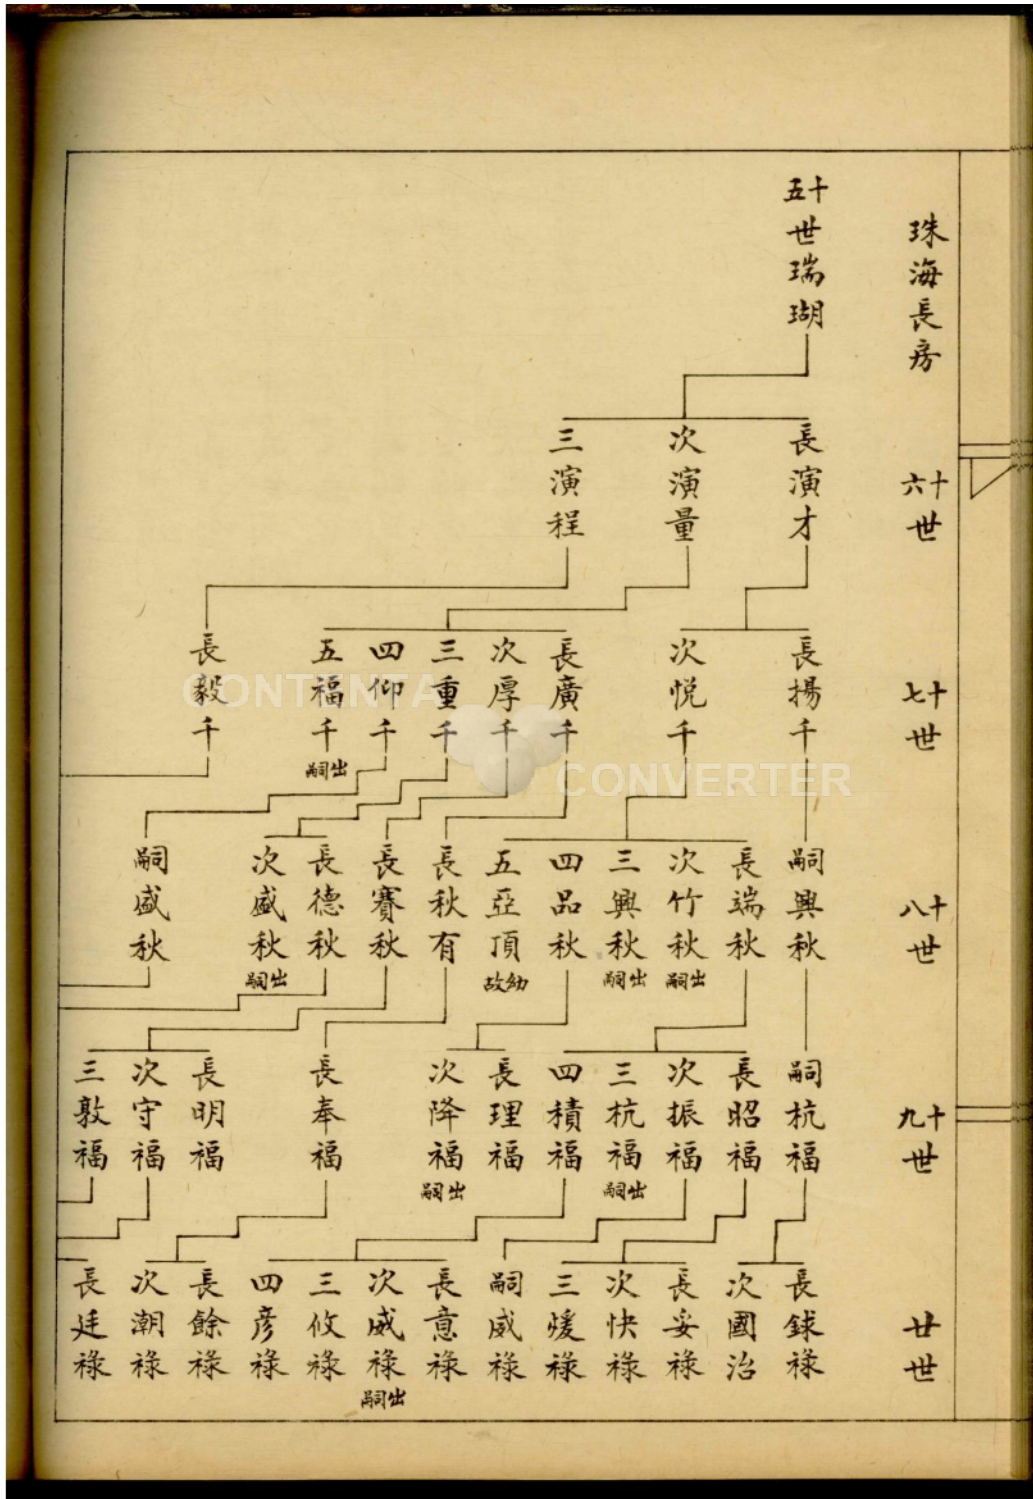 珠海長房
十五世瑞瑚
十六世
長演才
次演量
三演程
十七世
長揚千
次悦千
長廣千
次厚千
三重千
四仰千
五福千
出嗣
長毅千
十八世
嗣興秋
長端秋
次竹秋
出嗣
三興秋
出嗣
四品秋
五亞頂
幼故
長秋有
長賽秋
長德秋
次盛秋
出嗣
嗣盛秋
十九世
嗣杭福
長昭福
次振福
三杭福
出嗣
四積福
長理福
次降福
出嗣
長奉福
長明福
次守福
三敦福
廿世
長銶祿
次國治
長妥祿
次快祿
三煖祿
嗣威祿
長意祿
次威祿
出嗣
三攸祿
四彥祿
長餘祿
次潮祿
長廷祿
CONTENTA
CONVERTER